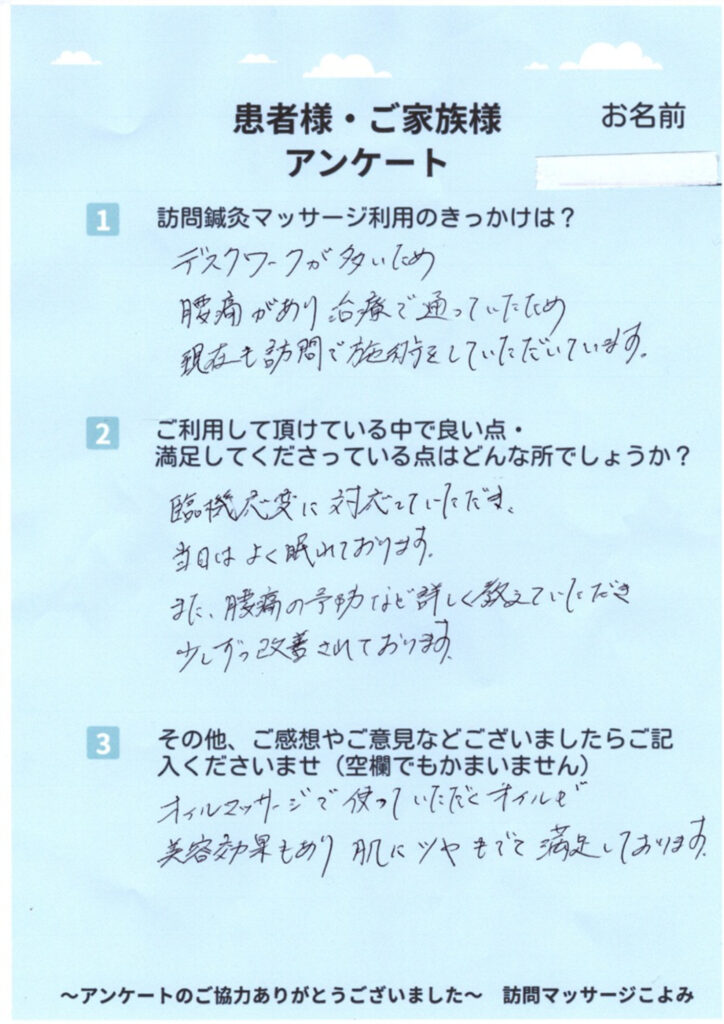 患者様・ご家族様
アンケート
お名前
1 訪問鍼灸マッサージ利用のきっかけは？
デスクワークが多いため
腰痛があり治療で通っていたため
現在も訪問で施術をしていただいています。
2 ご利用して頂けている中で良い点・
満足してくださっている点はどんな所でしょうか？
臨機応変に対応していただき、
当日はよく眠れております。
また、腰痛の予防など詳しく教えていただき
少しずつ改善されております。
3 その他、ご感想やご意見などございましたらご記
入くださいませ（空欄でもかまいません）
オイルマッサージで使っていただくオイルも
美容効果もあり肌にツヤもでて満足しております。
～アンケートのご協力ありがとうございました～　訪問マッサージこよみ